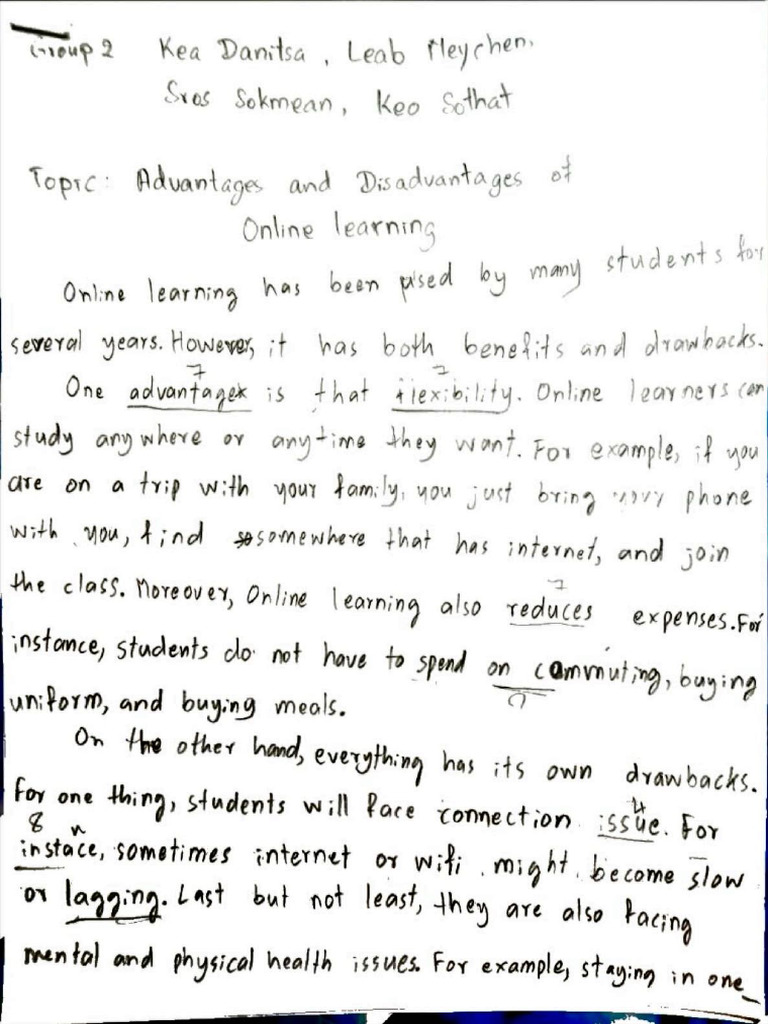 Group 2 Kea Danitsa, Leab Meychen.
Sros Sokmean, Keo Sothat
Topic: Advantages and Disadvantages of
Online learning
Online learning has been used by many students for
several years. However, it has both benefits and drawbacks.
7 7
One advantage is that flexibility. Online learners can
study anywhere or anytime they want. For example, if you
are on a trip with your family, you just bring your phone
with you, find somewhere that has internet, and join
7
the class. Moreover, Online learning also reduces expenses. For
instance, students do not have to spend on commuting, buying
uniform, and buying meals.
On the other hand, everything has its own drawbacks.
For one thing, students will face connection issue. For
8 n 4
instace, sometimes internet or wifi might become slow
or lagging. Last but not least, they are also facing
mental and physical health issues. For example, staying in one